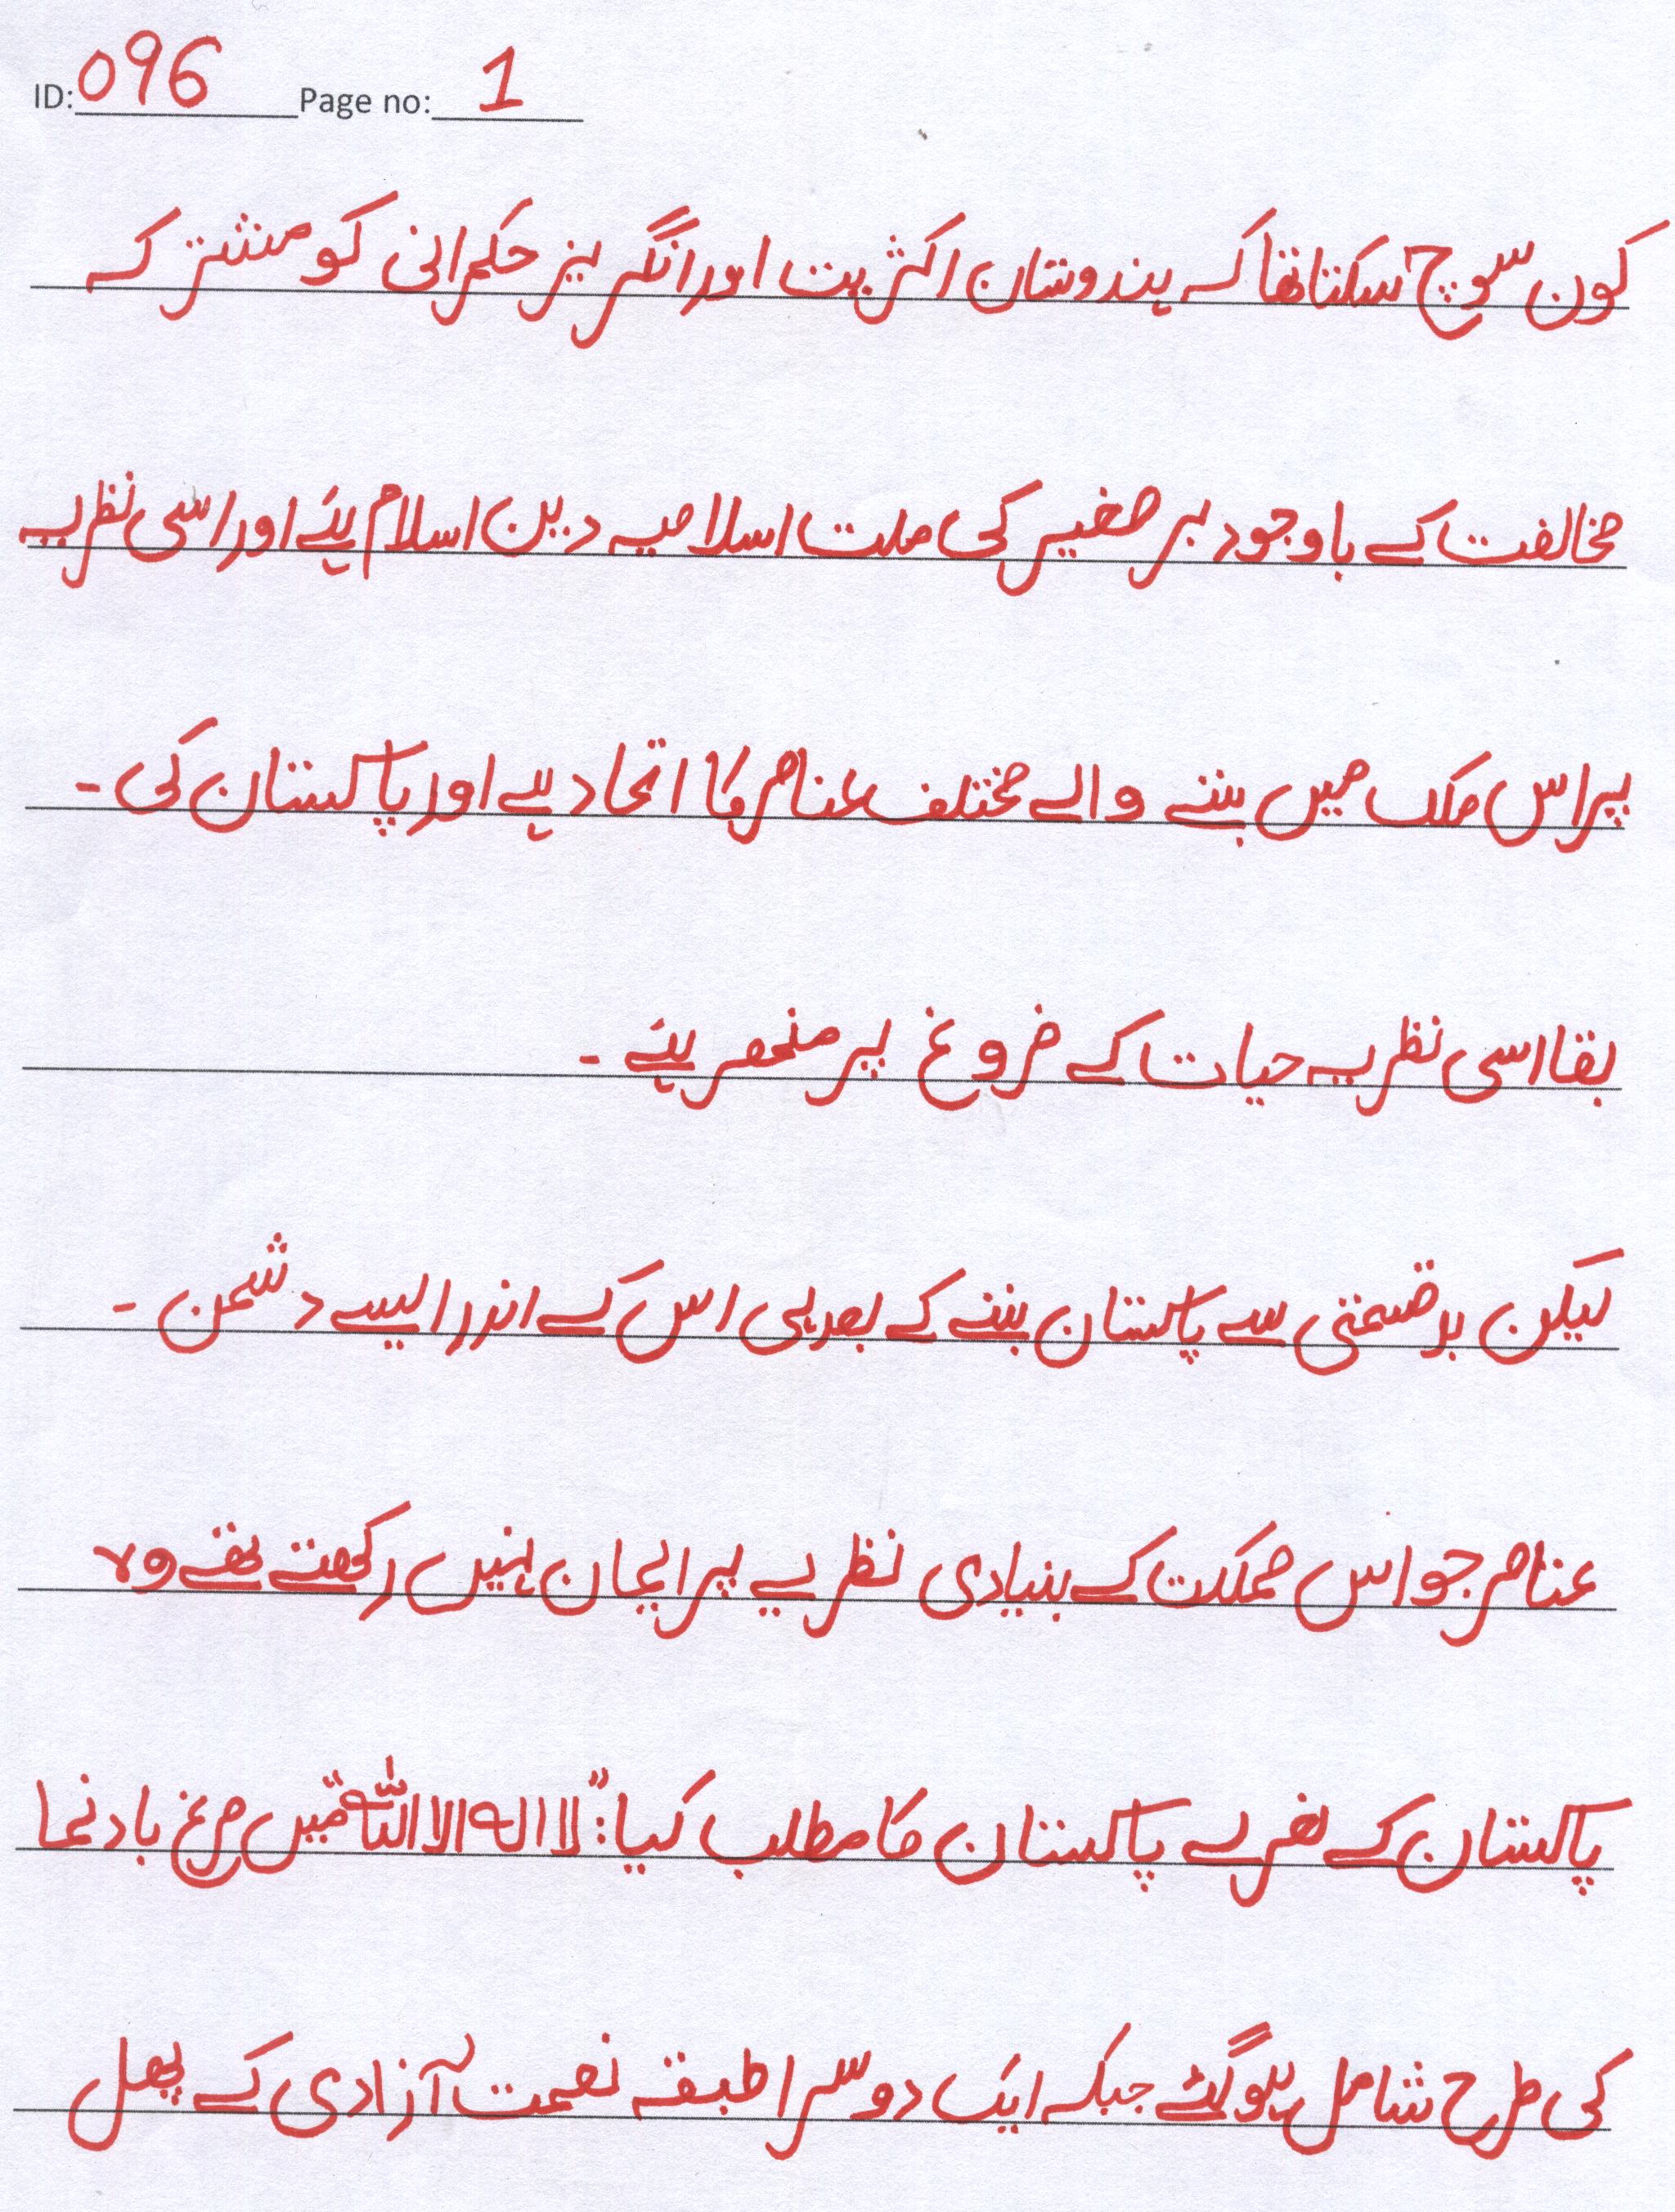 ID: 096 Page no: 1
کون سوچ سکتا تھا کہ ہندوستان اکثریت اور انگریز حکمرانی کو مشترکہ
مخالفت کے باوجود برصغیر کی ملت اسلامیہ دین اسلام ہئے اور اسی نظریہ
پر اس ملک میں بسنے والے مختلف عناصر کا اتحاد ہے اور پاکستان کی -
بقا اسی نظریہ حیات کے فروغ پر منحصر ہئے -
لیکن بدقسمتی سے پاکستان بننے کے بعد ہی اس کے اندر ایسے دشمن -
عناصر جو اس مملکت کے بنیادی نظریے پر ایمان نہیں رکھتے تھے وہ
پاکستان کے نعرے پاکستان کا مطلب کیا: "لا الہ الا اللہ" میں مرغ بادنما
کی طرح شامل ہوگئے جبکہ ایک دوسرا طبقہ نعمت آزادی کے پھل